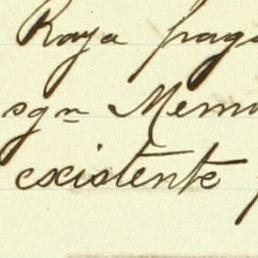 Raya frag
sgn Memo
existente